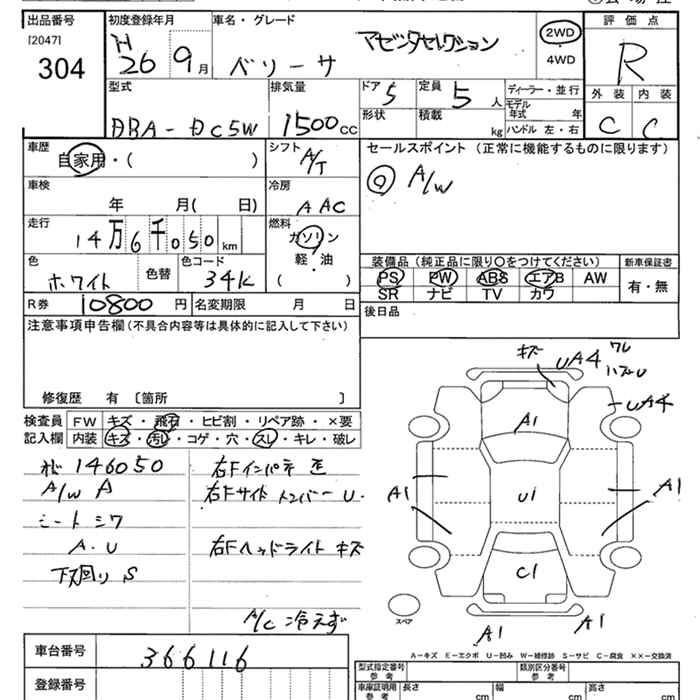 出品番号 初度登録年月 車名・グレード 評価点
[2047] 304
H26 9月 ベリーサ マゼンタセレクション 2WD ・ 4WD R
型式 排気量 ドア 5 定員 5人 ディーラー・並行
DBA-DC5W 1500cc 形状 積載 kg モデル年式 年
ハンドル 左・右
外装 内装
C C
車歴 自家用・( )
シフト A/T
セールスポイント (正常に機能するものに限ります)
A/W
車検 年 月( 日)
冷房 AAC
走行 14万6千050km
燃料 ガソリン 軽・油 ( )
色 ホワイト 色替 色コード 34K
装備品 (純正品に限り〇をつけてください) 新車保証書
PS PW ABS エアB AW 有・無
SR ナビ TV カワ
R券 10800円 名変期限 月 日
後日品
注意事項申告欄 (不具合内容等は具体的に記入して下さい)
修復歴 有 〔箇所 〕
検査員 記入欄
FW キズ・飛石・ヒビ割・リペア跡・×要
内装 キズ・汚レ・コゲ・穴・スレ・キレ・破レ
146050
A/W A
シートシワ
A.U
下廻り S
右Fインパネ
右Fサイドメンバー U
右Fヘッドライト キズ
A/C 冷えず
キズ UA4 ワレ
UA4
A1
A1
U1
A1
C1
A1
A1
スペア
A-キズ E-エクボ U-凹み W-補修跡 S-サビ C-腐食 ××-交換済
車台番号 366116
登録番号
型式指定番号 参考 類別区分番号 参考
車庫証明用 参考 長さ cm 幅 cm 高さ cm